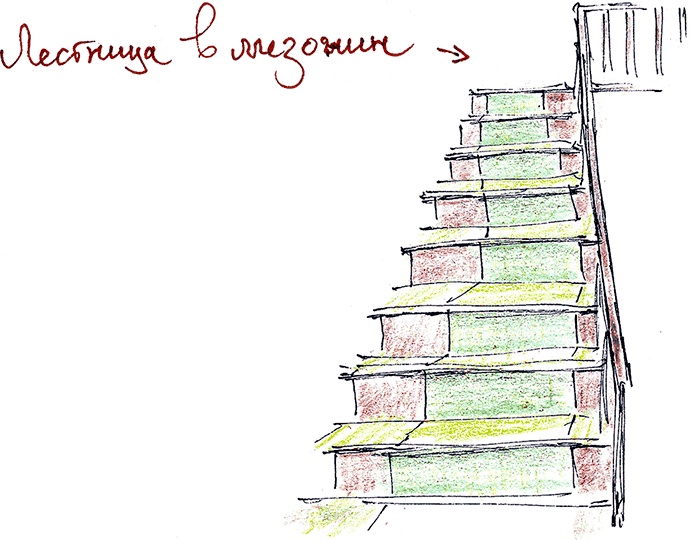 Лестница в мезонин